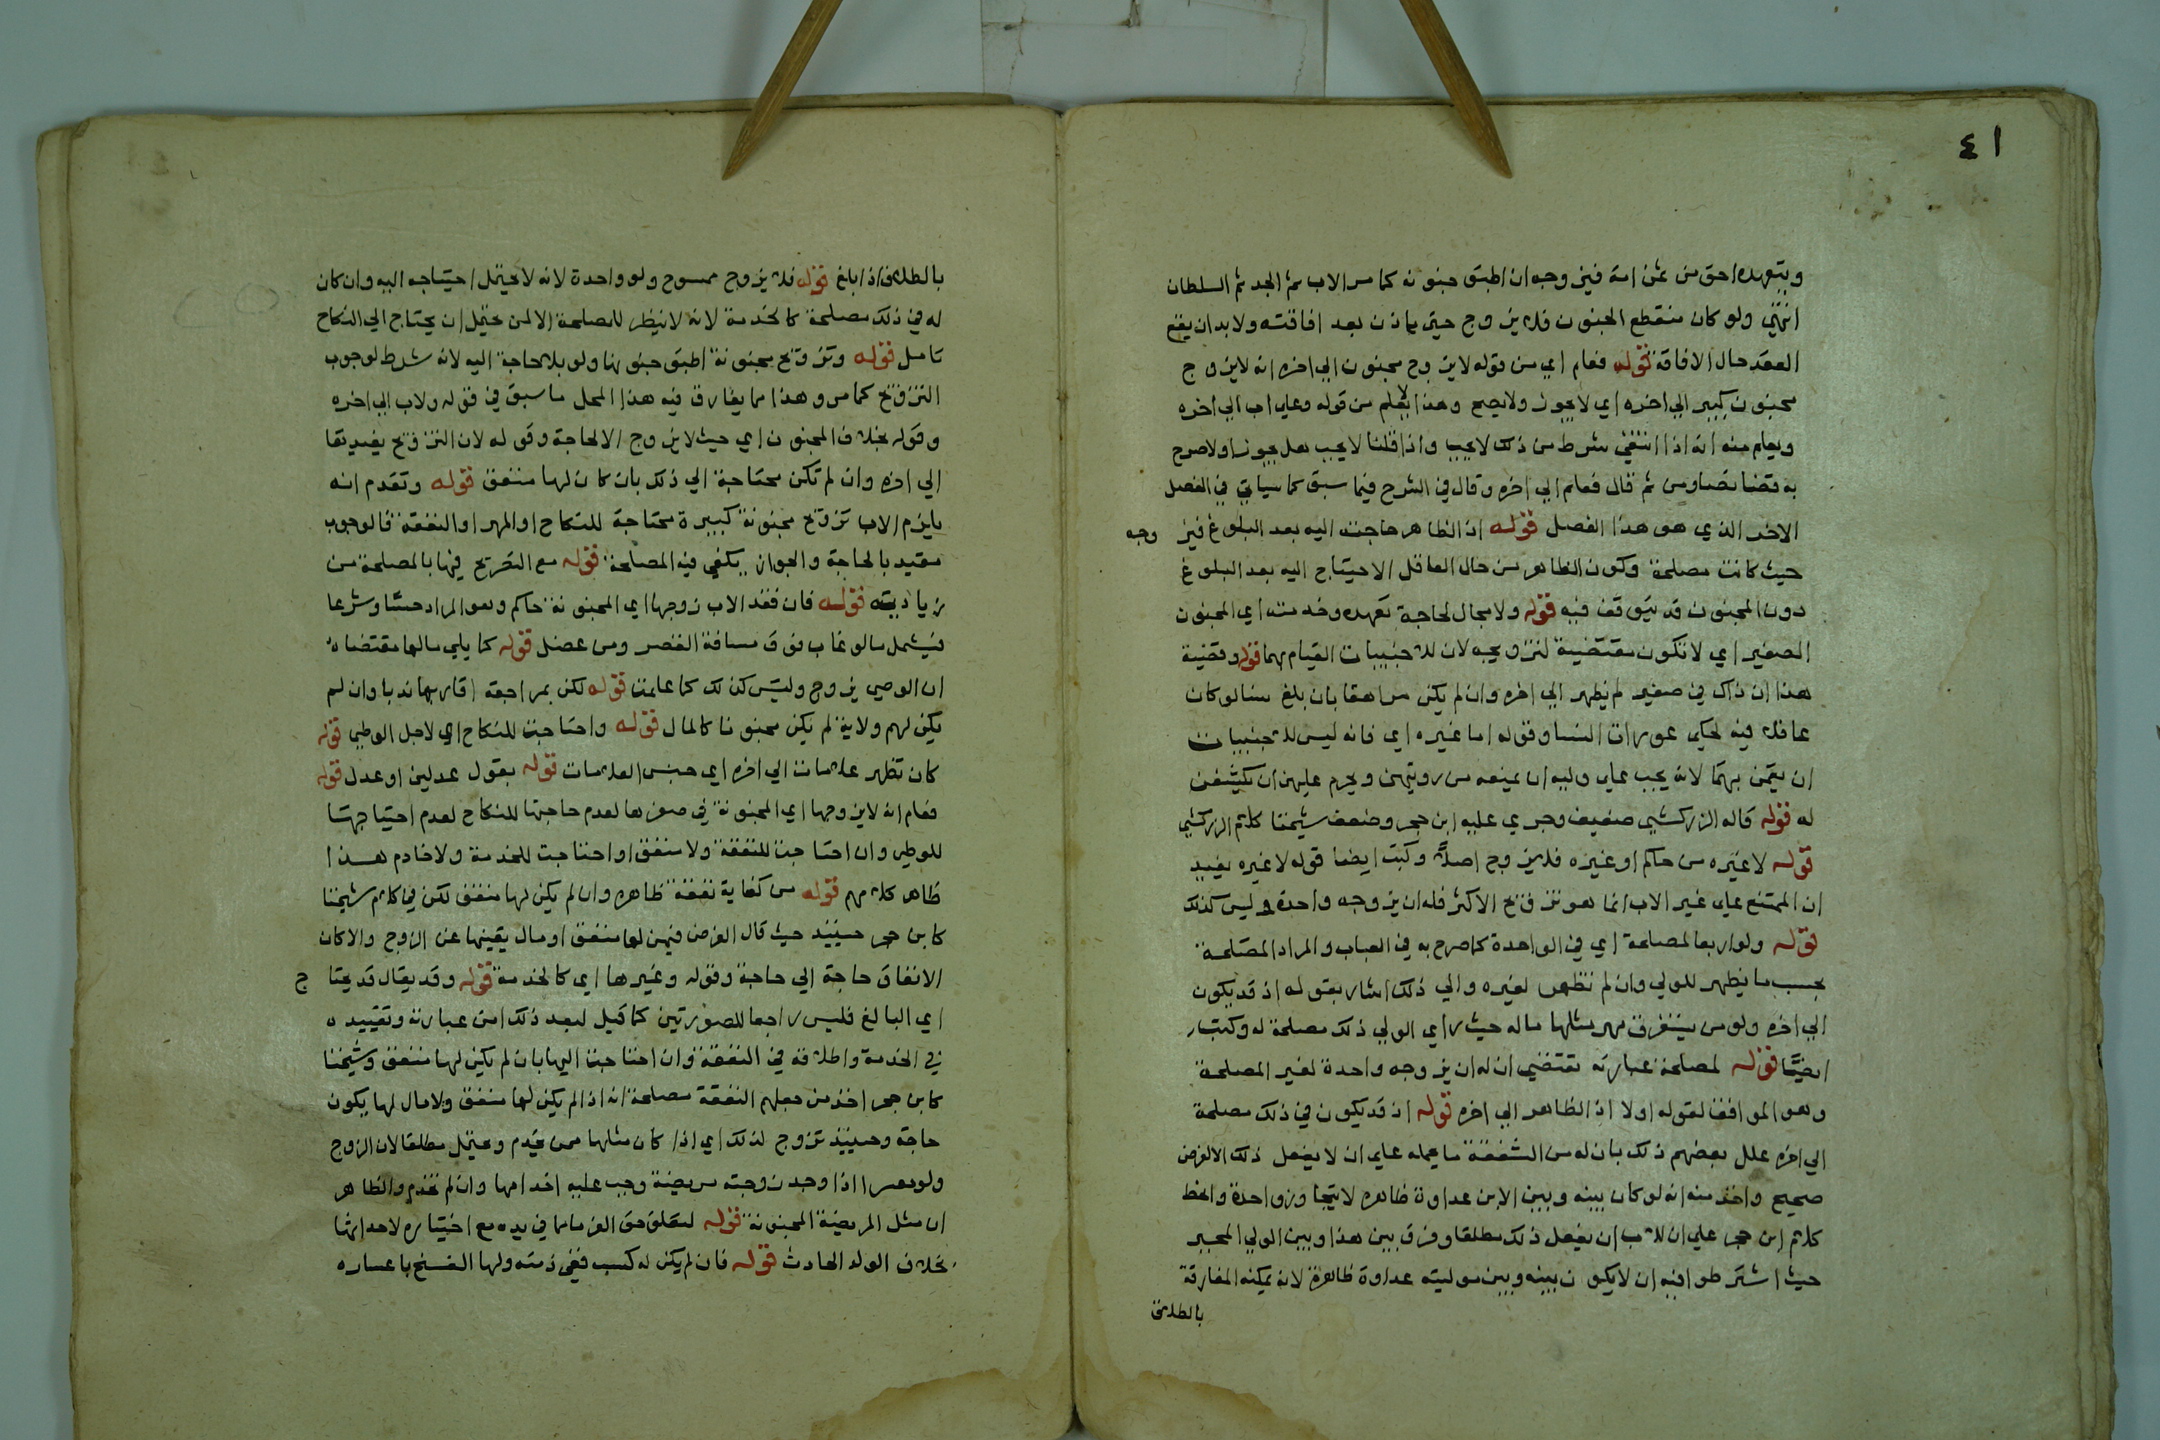 ٤١
ويتعهده احق من ثمن امة فيزوجه ان اطبق جنونه كما مر الاب ثم الجد ثم السلطان
انتهي ولو كان منقطع الجنون فلا يزوج حتي ياذن بعد افاقته ولا بد ان يقع
العقد حال الافاقة قوله فعلم اي من قوله لا يزوج مجنون الي اخره انه لا يزوج
مجنون كبير الي اخره اي لا يجوز ولا يصح وهذا يعلم من قوله وعلي اب الي اخره
ويعلم منه انه اذا انتفي شرط من ذلك لا يجب واذا قلنا لا يجب هل يجوز او لا صرح
به ثم قال فعلم الي اخره وقال في الشرح فيما سبق كما سياتي في الفصل
الاخر الذي هو هذا الفصل قوله اذ الظاهر حاجته اليه بعد البلوغ فيز وجه
حيث كانت مصلحة وكون الظاهر من حال العاقل الاحتياج اليه بعد البلوغ
دون المجنون قد يتوقف فيه قوله ولا مجال لحاجة تعهده وخدمته اي المجنون
الصغير اي لا تكون مقتضية لتزويجه لان للاجنبيات القيام بهما قوله وقضية
هذا ان ذاك في صغير لم يظهر الي اخره وان لم يكن مراهقا بان بلغ سنا لو كان
عاقلا فيه لحكي عورات النسا وقوله اما غيره اي فانه ليس للاجنبيات
ان يقمن بهما لانه يجب علي وليه ان يمنعه من رويتهن ويحرم عليهن ان تكشفن
له قوله قاله الزركشي ضعيف وجري عليه ابن حجر وضعف شيخنا كلام الزركشي
قوله لا غيره من حاكم او غيره فلا يزوج اصلا وكتب ايضا قوله لا غيره يفيد
ان الممتنع علي غير الاب انما هو تزويج الاكثر فله ان يزوجه واحدة وليس كذلك
قوله ولو اربعا لمصلحة اي في الواحدة كما صرح به في العباب والمراد المصلحة
بحسب ما يظهر للولي وان لم تظهر لغيره والي ذلك اشار بقوله اذ قد يكون
الي اخره ولو من يستغرق مهر مثلها ماله حيث راي الولي ذلك مصلحة له وكتب
ايضا قوله لمصلحة عبارته تقتضي ان له ان يزوجه واحدة لغير المصلحة
وهو الموافق لقوله اولا اذ الظاهر الي اخره قوله اذ قد يكون في ذلك مصلحة
الي اخره علل بعضهم ذلك بان له من الشفقة ما يحمله علي ان لا يفعل ذلك الا لغرض
صحيح واخذ منه انه لو كان بينه وبين الابن عداوة ظاهرة لا يتجاوز واحدة وانحط
كلام ابن حجر علي ان للاب ان يفعل ذلك مطلقا وفرق بين هذا وبين الولي المجبر
حيث اشترطوا فيه ان لا يكون بينه وبين موليته عداوة ظاهرة لانه يمكنه المفارقة
بالطلاق
بالطلاق اذا بلغ قوله فلا يزوج ممسوح ولو واحدة لانه لا يحتمل احتياجه اليه وان كان
له في ذلك مصلحة كالخدمة لانه لا ينظر للمصلحة الا لمن يحتمل ان يحتاج الي النكاح
تامل قوله وتزويج مجنونة اطبق جنونها ولو بلا حاجة اليه لانه شرط لوجوب
التزويج كما مر وهذا مما يفارق فيه هذا المحل ما سبق في قوله ولاب الي اخره
وقوله بخلاف المجنون اي حيث لا يزوج الا لحاجة وقوله لان التزويج يفيدها
الي اخره وان لم تكن محتاجة الي ذلك بان كان لها منفق قوله وتقدم انه
يلزم الاب تزويج مجنونة كبيرة محتاجة للنكاح او المهر او النفقة فالوجوب
مقيد بالحاجة والجواز يكفي فيه المصلحة قوله مع التصريح فيها بالمصلحة من
زيادته قوله فان فقد الاب زوجها اي المجنونة حاكم وهو المراد حسا وشرعا
فيشمل ما لو غاب فوق مسافة القصر ومن عضل قوله كما يلي مالها مقتضاه
ان الوصي يزوج وليس كذلك كما علمت قوله لكن بمراجعة اقاربها ندبا وان لم
يكن لهم ولاية لم يكن مجنونا كالمال قوله واحتاجت للنكاح اي لاجل الوطي قوله
كان تظهر علامات الي اخره اي جنس العلامات قوله بقول عدلين او عدل قوله
فعلم انه لا يزوجها اي المجنونة في صغرها لعدم حاجتها للنكاح لعدم احتياجها
للوطي وان احتاجت للنفقة ولا منفق او احتاجت للخدمة ولا خادم هذا
ظاهر كلامهم قوله من كفاية نفقة ظاهره وان لم يكن لها منفق لكن في كلام شيخنا
كابن حجر حينئذ حيث قال الفرض فيمن لها منفق او مال يغنيها عن الزوج والا كان
الانفاق حاجة الي حاجة وقوله وغيرها اي كالخدمة قوله وقد يقال قد يحتا ج
اي البالغ فليس راجعا للصورتين كما قيل لبعد ذلك من عبارته وتقييده
في الخدمة واطلاقه في النفقة وان احتاجت اليها بان لم يكن لها منفق وشيخنا
كابن حجر اخذ من جعلهم النفقة مصلحة انه اذا لم يكن لها منفق ولا مال لها يكون
حاجة وحينئذ تزوج لذلك اي اذا كان مثلها ممن يخدم ويحتمل مطلقا لان الزوج
ولو معسرا اذا وجد زوجته مريضة وجب عليه اخدامها وان لم تخدم والظاهر
ان مثل المريضة المجنونة قوله لتعلق حق الغرما بما في يده مع اختياره لاحداثها
بخلاف الولد الحادث قوله فان لم يكن له كسب ففي ذمته ولها الفسخ باعساره